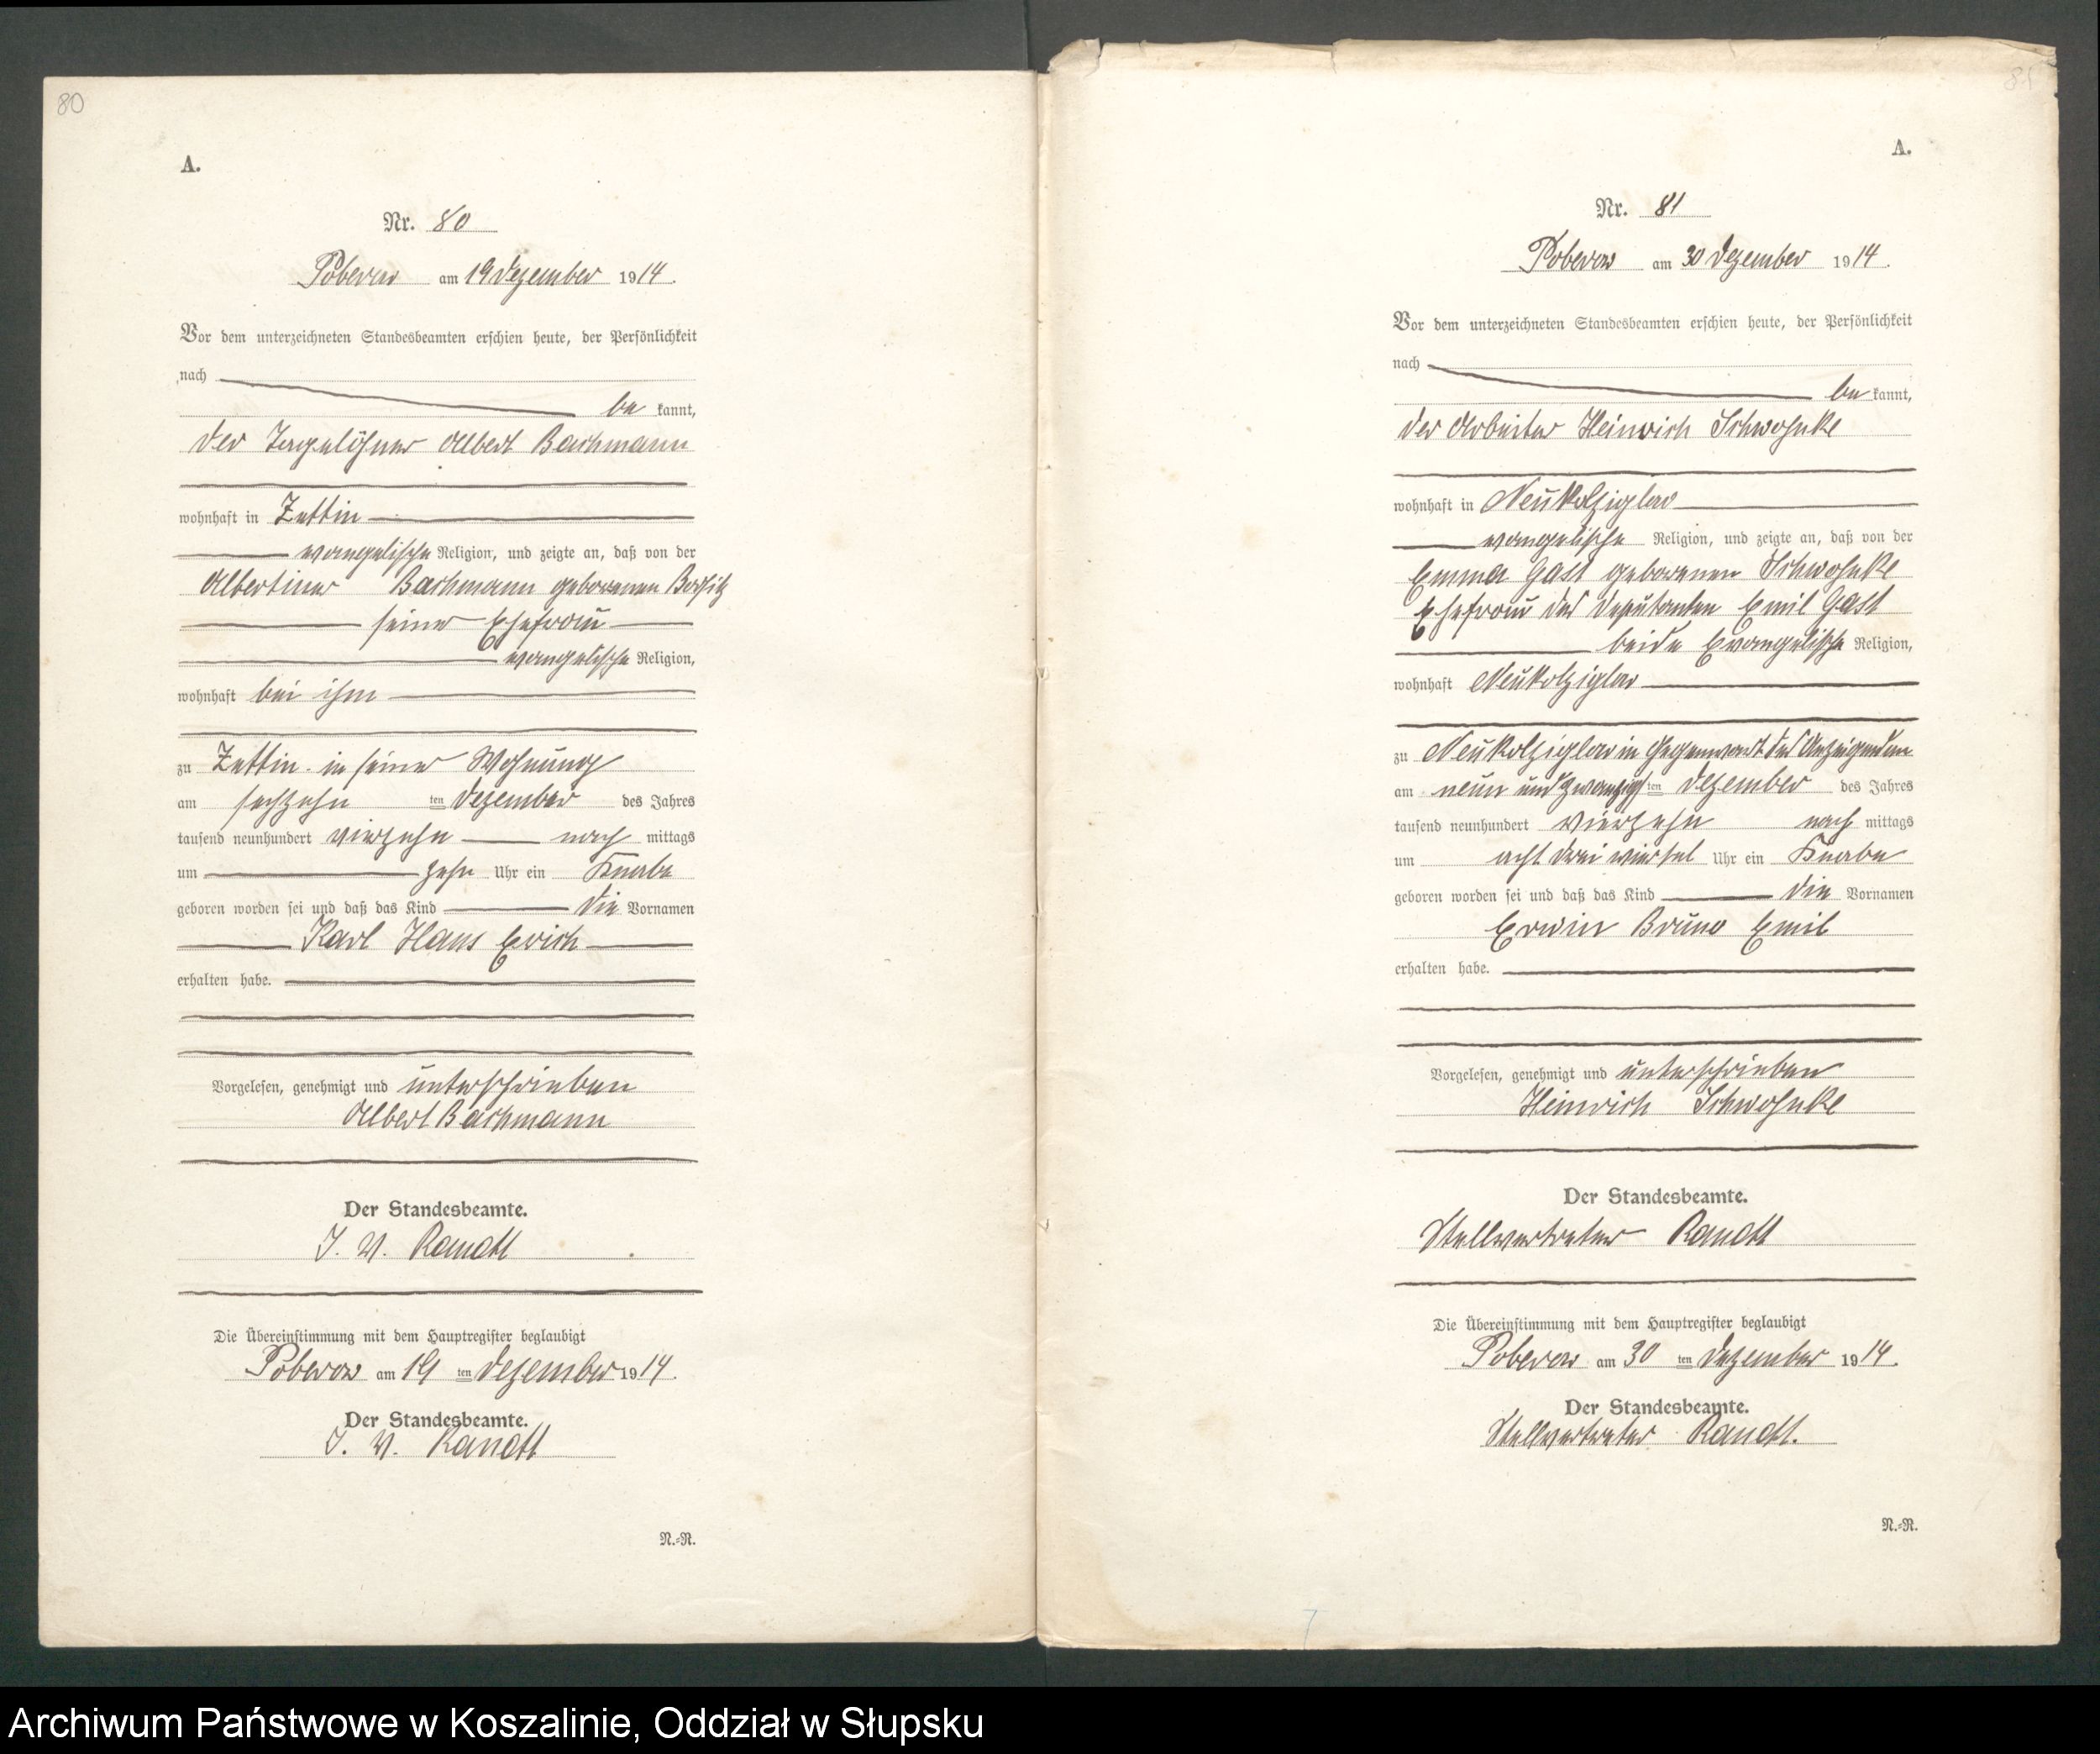 80
A.
Nr. 80
Poberow am 19 Dezember 1914.
Vor dem unterzeichneten Standesbeamten erschien heute, der Persönlichkeit
nach
be kannt,
der Tagelöhner Albert Bachmann
wohnhaft in Zettin
evangelische Religion, und zeigte an, daß von der
Albertine Bachmann geborenen
seiner Ehefrau
evangelische Religion,
wohnhaft bei ihm
zu Zettin in seiner Wohnung
am sechzehn ten Dezember des Jahres
tausend neunhundert vierzehn nach mittags
um zehn Uhr ein Knabe
geboren worden sei und daß das Kind die Vornamen
Karl Hans Erich
erhalten habe.
Vorgelesen, genehmigt und unterschrieben
Albert Bachmann
Der Standesbeamte.
J. V. Randtt
Die Übereinstimmung mit dem Hauptregister beglaubigt
Poberow am 19 ten Dezember 1914.
Der Standesbeamte.
J. V. Randtt
N.-R.
81
A.
Nr. 81
Poberow am 30 Dezember 1914.
Vor dem unterzeichneten Standesbeamten erschien heute, der Persönlichkeit
nach
be kannt,
der Arbeiter Heinrich Schwohnke
wohnhaft in Neukolziglow
evangelische Religion, und zeigte an, daß von der
Emma Gast geborenen Schwohnke
Ehefrau des Deputanten Emil Gast
beide Evangelische Religion,
wohnhaft Neukolziglow
zu Neukolziglow in Gegenwart des Anzeigenden
am neun und zwanzigs ten Dezember des Jahres
tausend neunhundert vierzehn nach mittags
um acht drei viertel Uhr ein Knabe
geboren worden sei und daß das Kind die Vornamen
Erwin Bruno Emil
erhalten habe.
Vorgelesen, genehmigt und unterschrieben
Heinrich Schwohnke
Der Standesbeamte.
Stellvertreter Randtt
Die Übereinstimmung mit dem Hauptregister beglaubigt
Poberow am 30 ten Dezember 1914.
Der Standesbeamte.
Stellvertreter Randtt.
N.-R.
7
Archiwum Państwowe w Koszalinie, Oddział w Słupsku